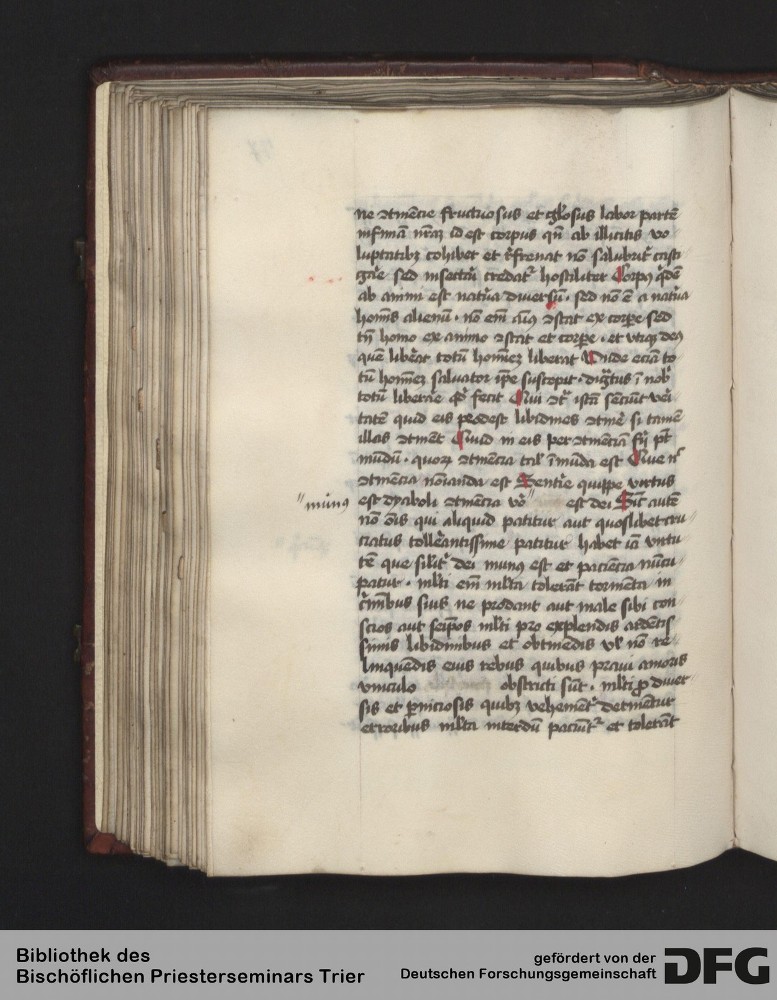 ne ↄtinẽcie fructuosus et gl̃osus labor partẽ
infimã nr̃aȝ id est corpus qñ ab illicitis vo
luptatibȝ cohibet et r̃frenat nõ salubrit̾ casti
gar̃e sed insectãr credat̾ hostiliter Corpꝯ q̃dẽ
ab animi est nat̃a diversũ · sed nõ ẽ a nat̃a
hom̃is alienũ · nõ em̃ aĩꝯ ↄstat ex corp̃e sed
tñ homo ex animo ↄstat et corp̃e · et vtiqȝ deꝯ
quẽ lib̃at totũ homĩeȝ liberat Vnde eciã to
tũ homĩeȝ salvator ip̃e suscepit · dig̃tus ĩ nob̾
totũ liberar̃e qd̾ fecit Qui ↄt̾ istã senciũt veri
tatẽ quid eis prodest libidines ↄtinẽ si tamẽ
illas ↄtinẽt Quid in eis per ↄtinẽciã fi̾ pt̾
mũdũ · quorȝ ↄtinẽcia tal̾ ĩmũda est Siue n̾
ↄtinẽcia noĩanda est Sentir̃e quippe virtus
"munꝯ
est dyaboli ↄtinẽcia v̾o " est dei Sic̾ autẽ
nõ õis qui aliquid patitur aut quoslibet cru
ciatus toller̃antissime patitur habet iã virtu
tẽ que silit̾ dei munꝯ est et paciẽcia nũcu
patur · ml̾ti em̃ ml̾ta tolerãt tormẽta in
c̾mĩbus suis ne prodant aut male sibi con
scios aut seip̃os ml̾ti pro explendis ardẽtis
simis libidinibus et obtinẽdis vl̾ nõ re
linquẽdis eius rebus quibus pravi amoris
vinculo obstricti sũt · ml̾ti ꝓ diver
sis et p̾niciosis quibȝ vehemẽt̾ detinẽtur
erroribus ml̾ta interdũ paciũt̾ et tolerãt
Bibliothek des
Bischöflichen Priesterseminars Trier
gefördert von der
Deutschen Forschungsgemeinschaft
DFG